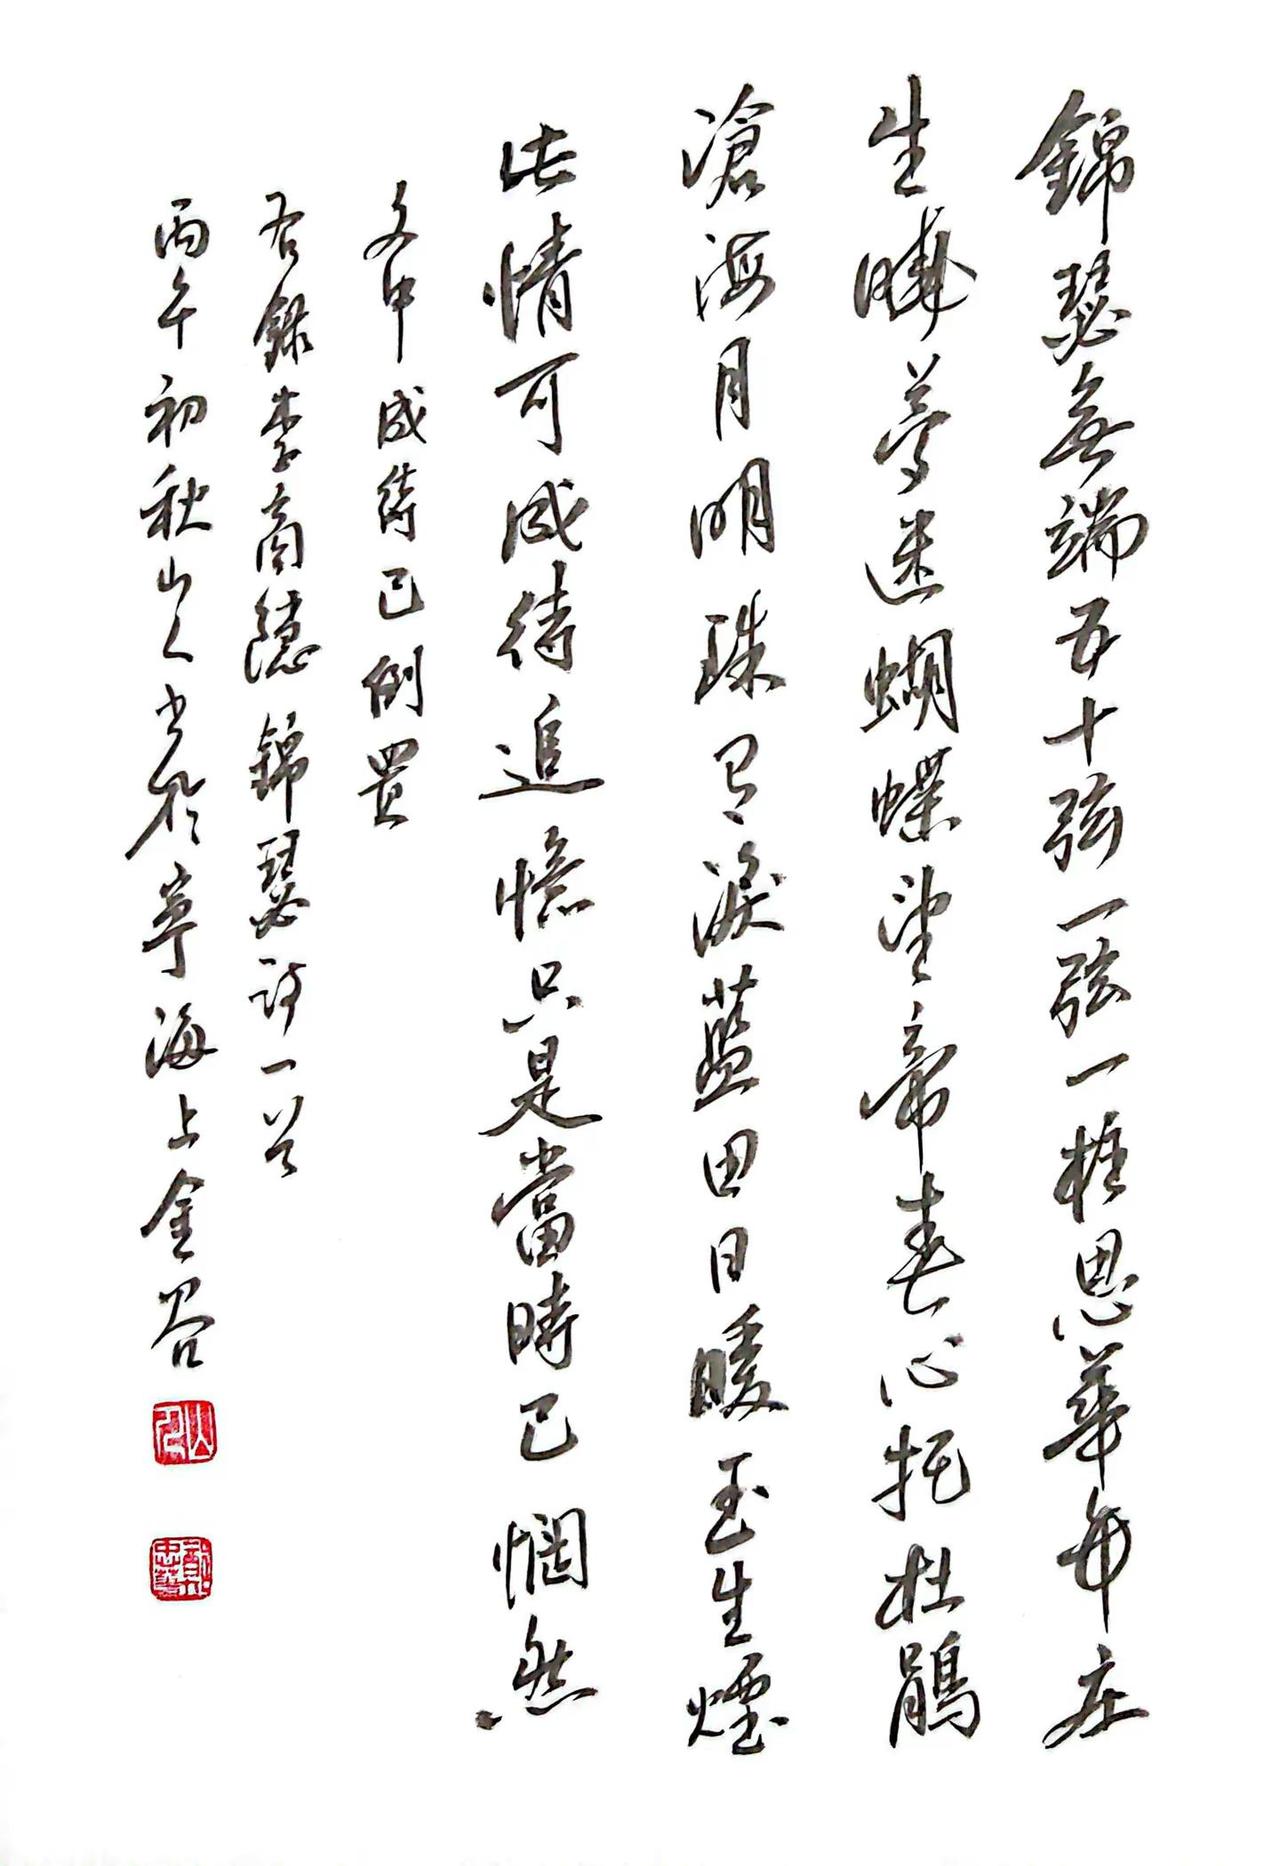 錦瑟無端五十弦一弦一柱思華年庄
生曉夢迷蝴蝶望帝春心托杜鵑
滄海月明珠有淚藍田日暖玉生煙
此情可成待追憶只是當時已惘然
文中成待已倒置
右錄李商隱錦瑟詩一首
丙午初秋山人書於寧海上金谷
山人